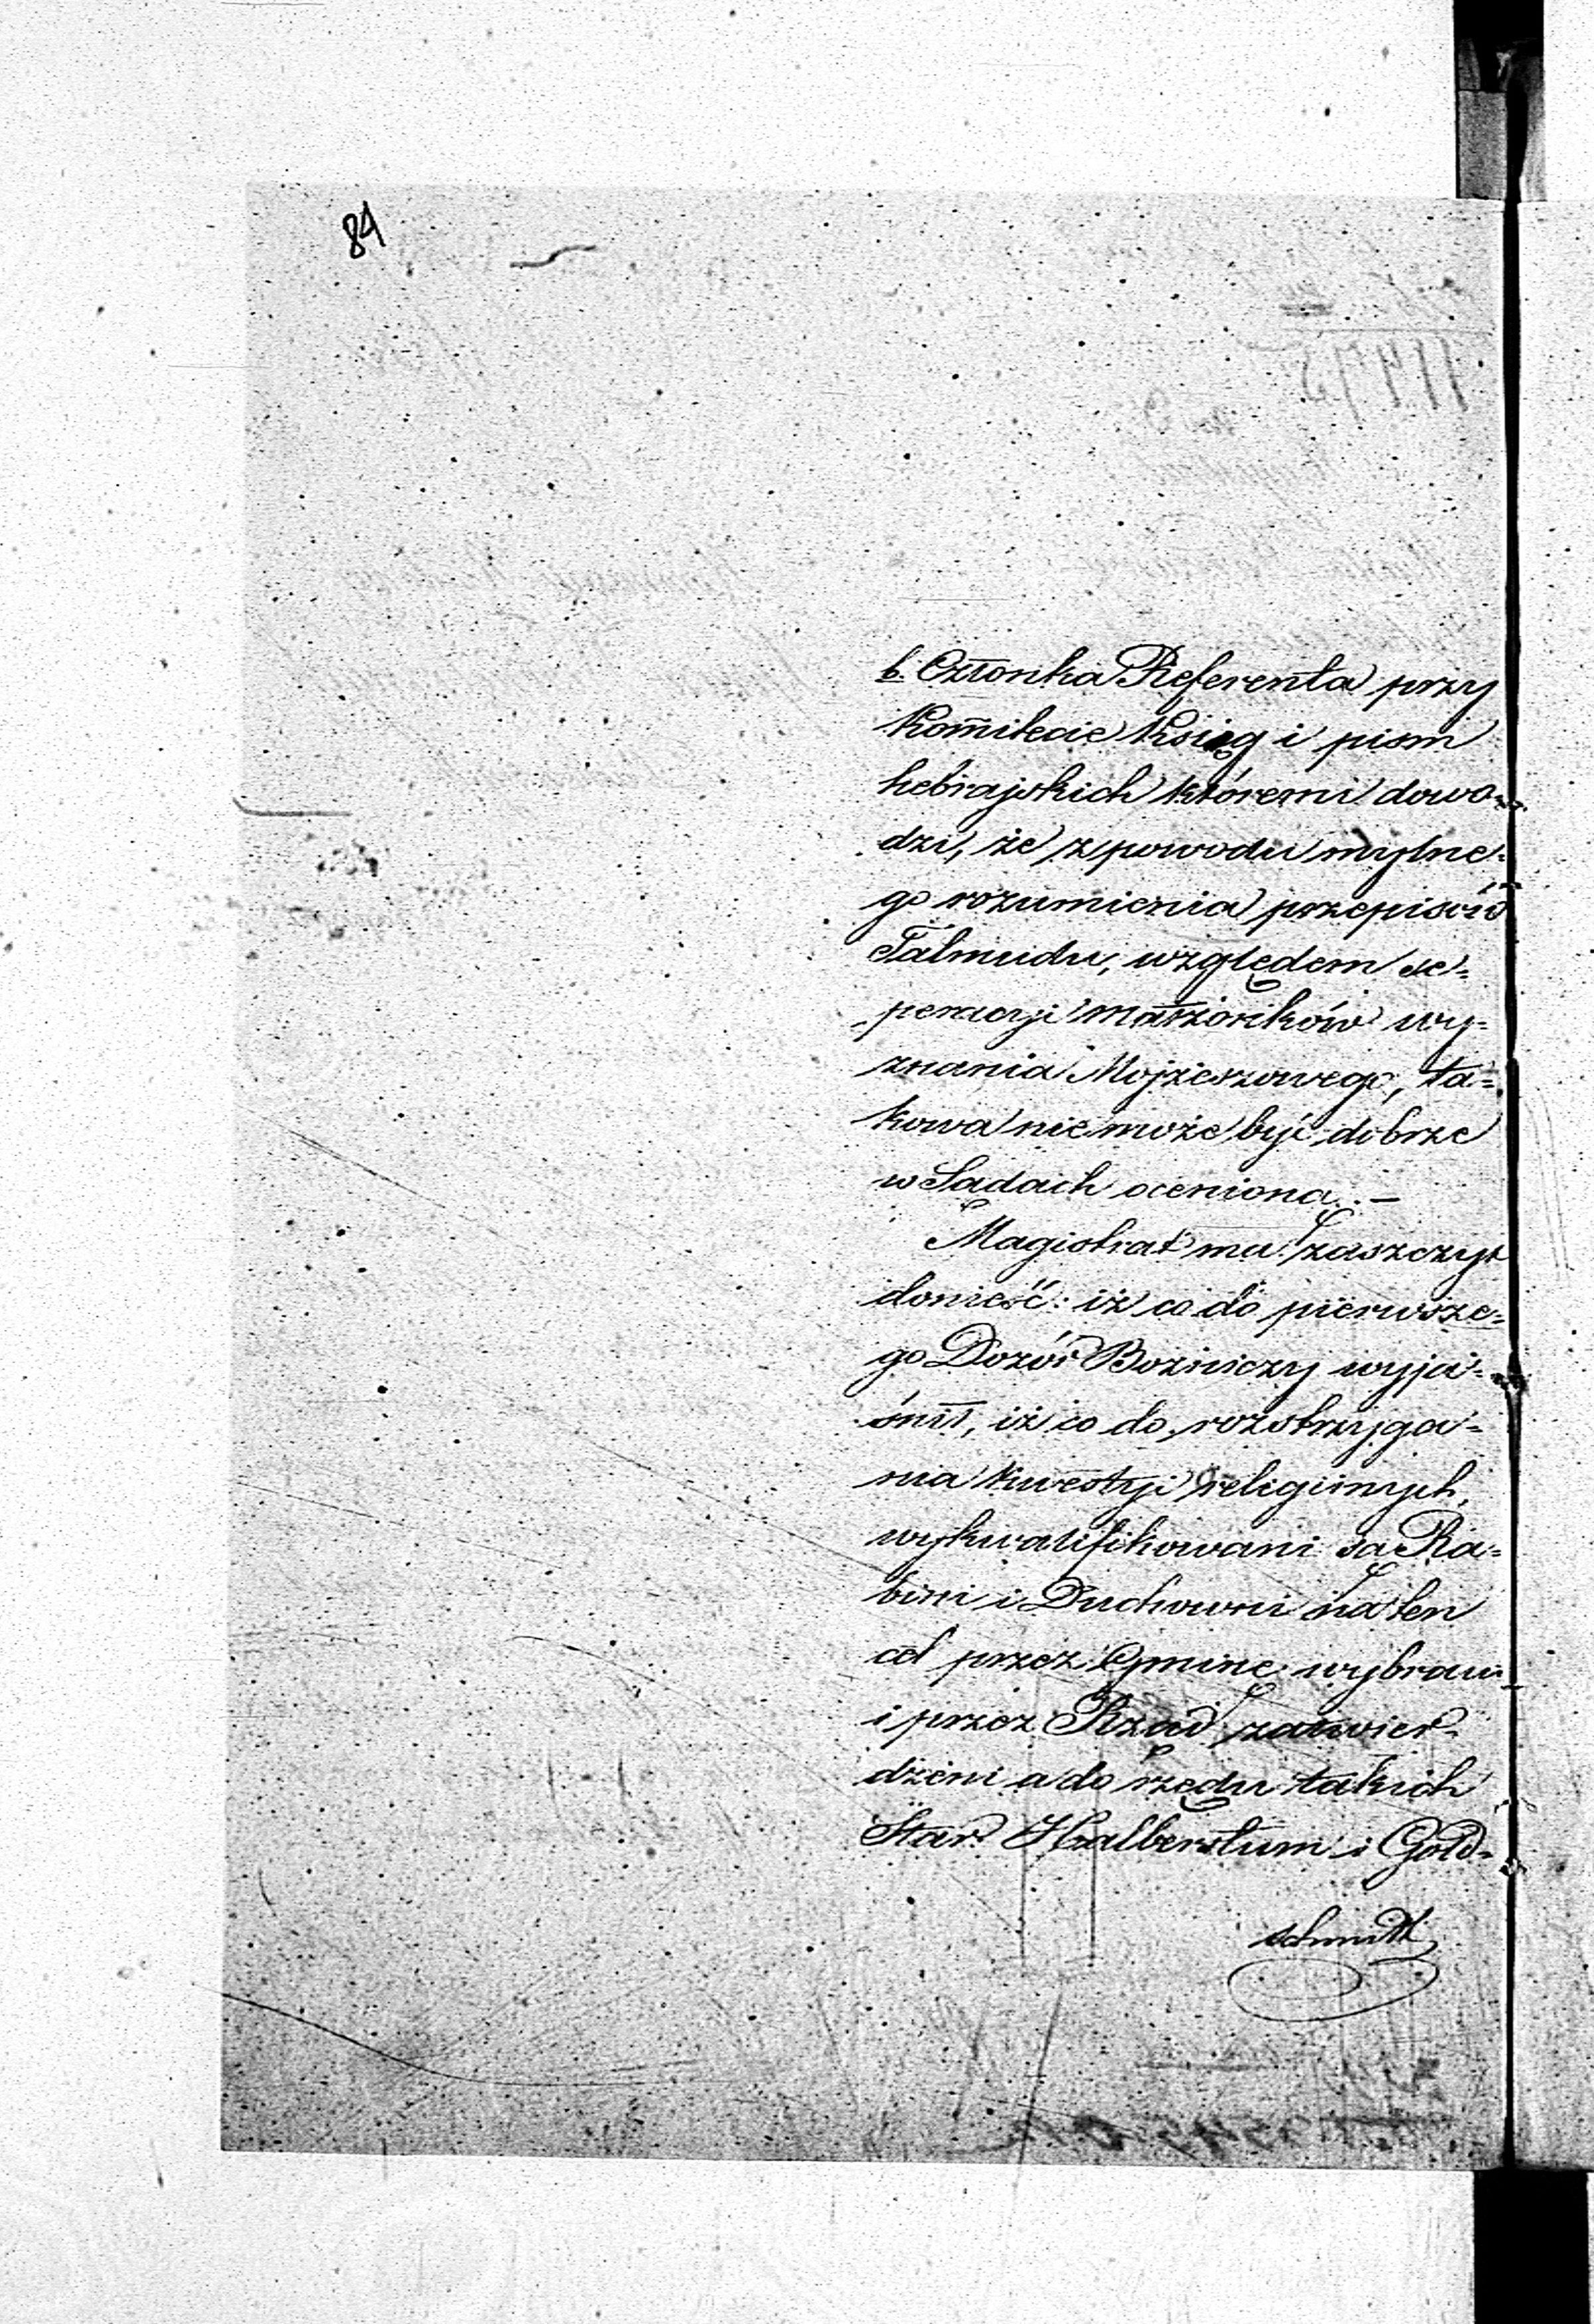 84
b. Członka Referenta przy
Komitecie Ksiąg i pism
hebrajskich któremi dowo-
dzi, że z powodu mylne-
go rozumienia przepisów
Talmudu, względem se-
peracyi małżonków wy-
znania Mojżeszowego, ta-
kowa nie może być dobrze
w Sądach oceniona. —
Magistrat ma zaszczyt
donieść: iż co do pierwsze-
go Dozór Bożniczy wyja-
śnił, iż co do rozstrzyga-
nia kwestyi religijnych,
wykwalifikowani są Ra-
bini i Duchowni na ten
cel przez Gminę wybrani
i przez Rząd zatwier-
dzeni a do rzędu takich
Star. Halberstum i Gold-
schmidt